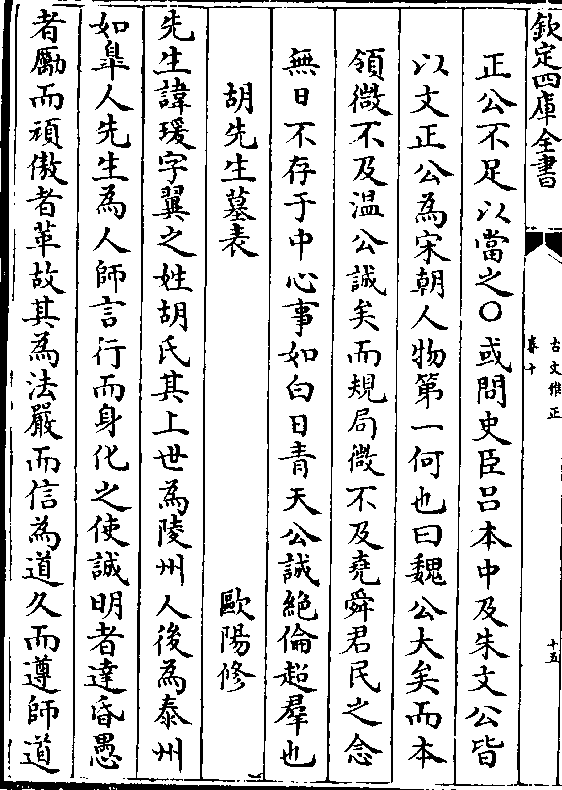 欽定四庫全書
古文雅正
卷十
十五
正公不足以當之○或問史臣呂本中及朱文公皆
以文正公為宋朝人物第一何也曰魏公大矣而本
領微不及温公誠矣而規局微不及堯舜君民之念
無日不存于中心事如白日青天公誠絶倫超羣也
胡先生墓表
歐陽修
先生諱瑗字翼之姓胡氏其上世為陵州人後為泰州
如臯人先生為人師言行而身化之使誠明者達昏愚
者勵而頑傲者革故其為法嚴而信為道久而尊師道